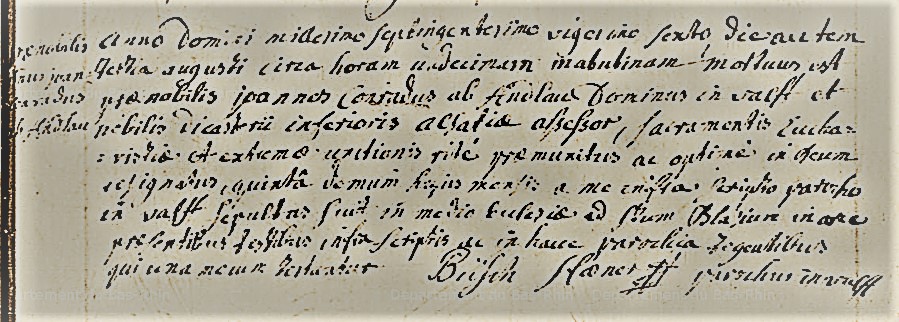 prænobilis
joan-
conradus
ab Andlau
Anno Domini millesimo septingentesimo vigesimo sexto die autem
tertia augusti circa horam undecimam mortuus est
prænobilis joannes Conradus ab Andlau Dominus in valff et
nobilis Dicasterii inferioris alsatiæ assessor, sacramentis Eucha=
=ristiæ et extremæ unctionis rite præmunitus ac optime in Deum
resignatus, quintâ demum hujus mensis a me infra scripto parocho
in valff sepultus fuit in medio Ecclesiæ ad stum Blasium
præsentibus testibus infra scriptis ac in hacce parochia degentibus
qui una mecum testantur
parochus in valff